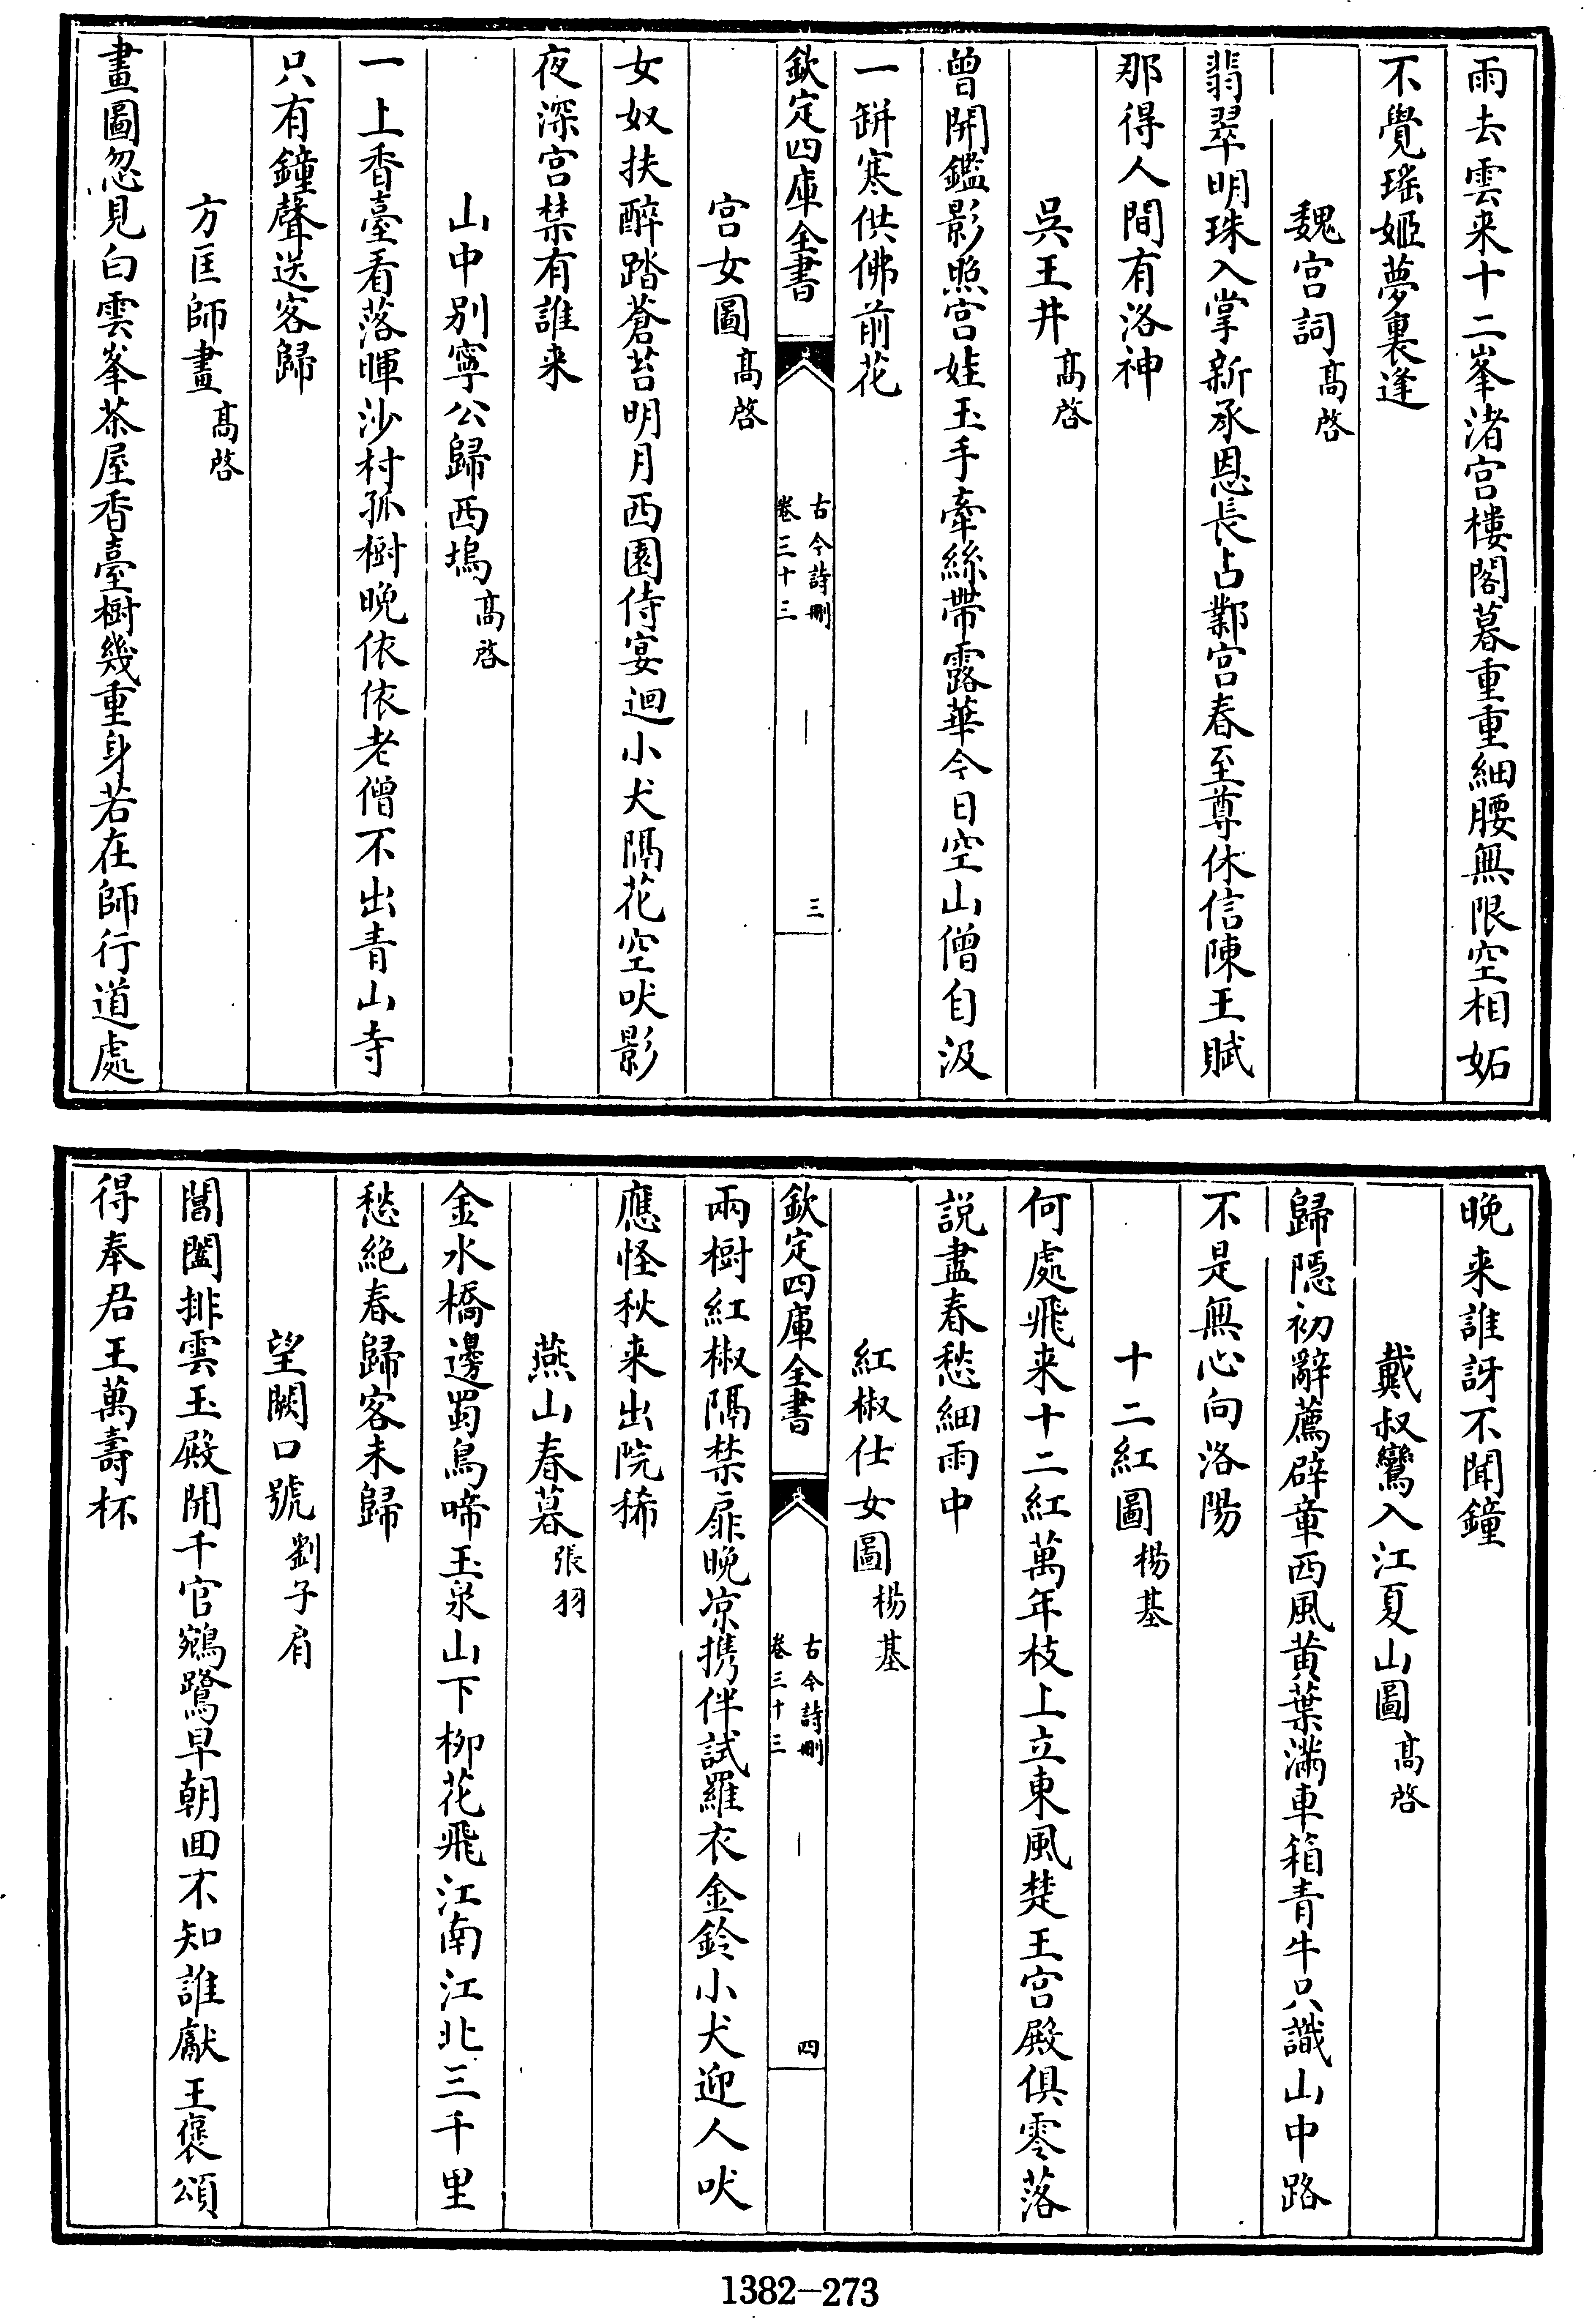 雨去雲来十二峯渚宫樓閣暮重重細腰無限空相妬
不覺瑤姬夢裏逢
魏宫詞髙啓
翡翠明珠入掌新承恩長占鄴宫春至尊休信陳王賦
那得人間有洛神
吳王井髙啓
曾開鑑影照宫娃玉手牽絲帶露華今日空山僧自汲
一缾寒供佛前花
欽定四庫全書
古今詩刪
卷三十三
三
宫女圖髙啓
女奴扶醉踏蒼苔明月西園侍宴迴小犬隔花空吠影
夜深宫禁有誰来
山中别寧公歸西塢髙啓
一上香臺看落暉沙村孤樹晚依依老僧不出青山寺
只有鐘聲送客歸
方匡師畫髙啓
畫圖忽見白雲峯茶屋香臺樹幾重身若在師行道處
晚来誰訝不聞鐘
戴叔鸞入江夏山圖髙啓
歸隠初辭薦辟章西風黄葉滿車箱青牛只識山中路
不是無心向洛陽
十二紅圖楊基
何處飛来十二紅萬年枝上立東風楚王宫殿俱零落
説盡春愁細雨中
紅椒仕女圖楊基
欽定四庫全書
古今詩刪
卷三十三
四
兩樹紅椒隔禁扉晚凉携伴試羅衣金鈴小犬迎人吠
應怪秋来出院稀
燕山春暮張羽
金水橋邊蜀鳥啼玉泉山下柳花飛江南江北三千里
愁絶春歸客未歸
望闕口號劉子肩
閶闔排雲玉殿開千官鵷鷺早朝回不知誰獻王褒頌
得奉君王萬壽杯
1382-273